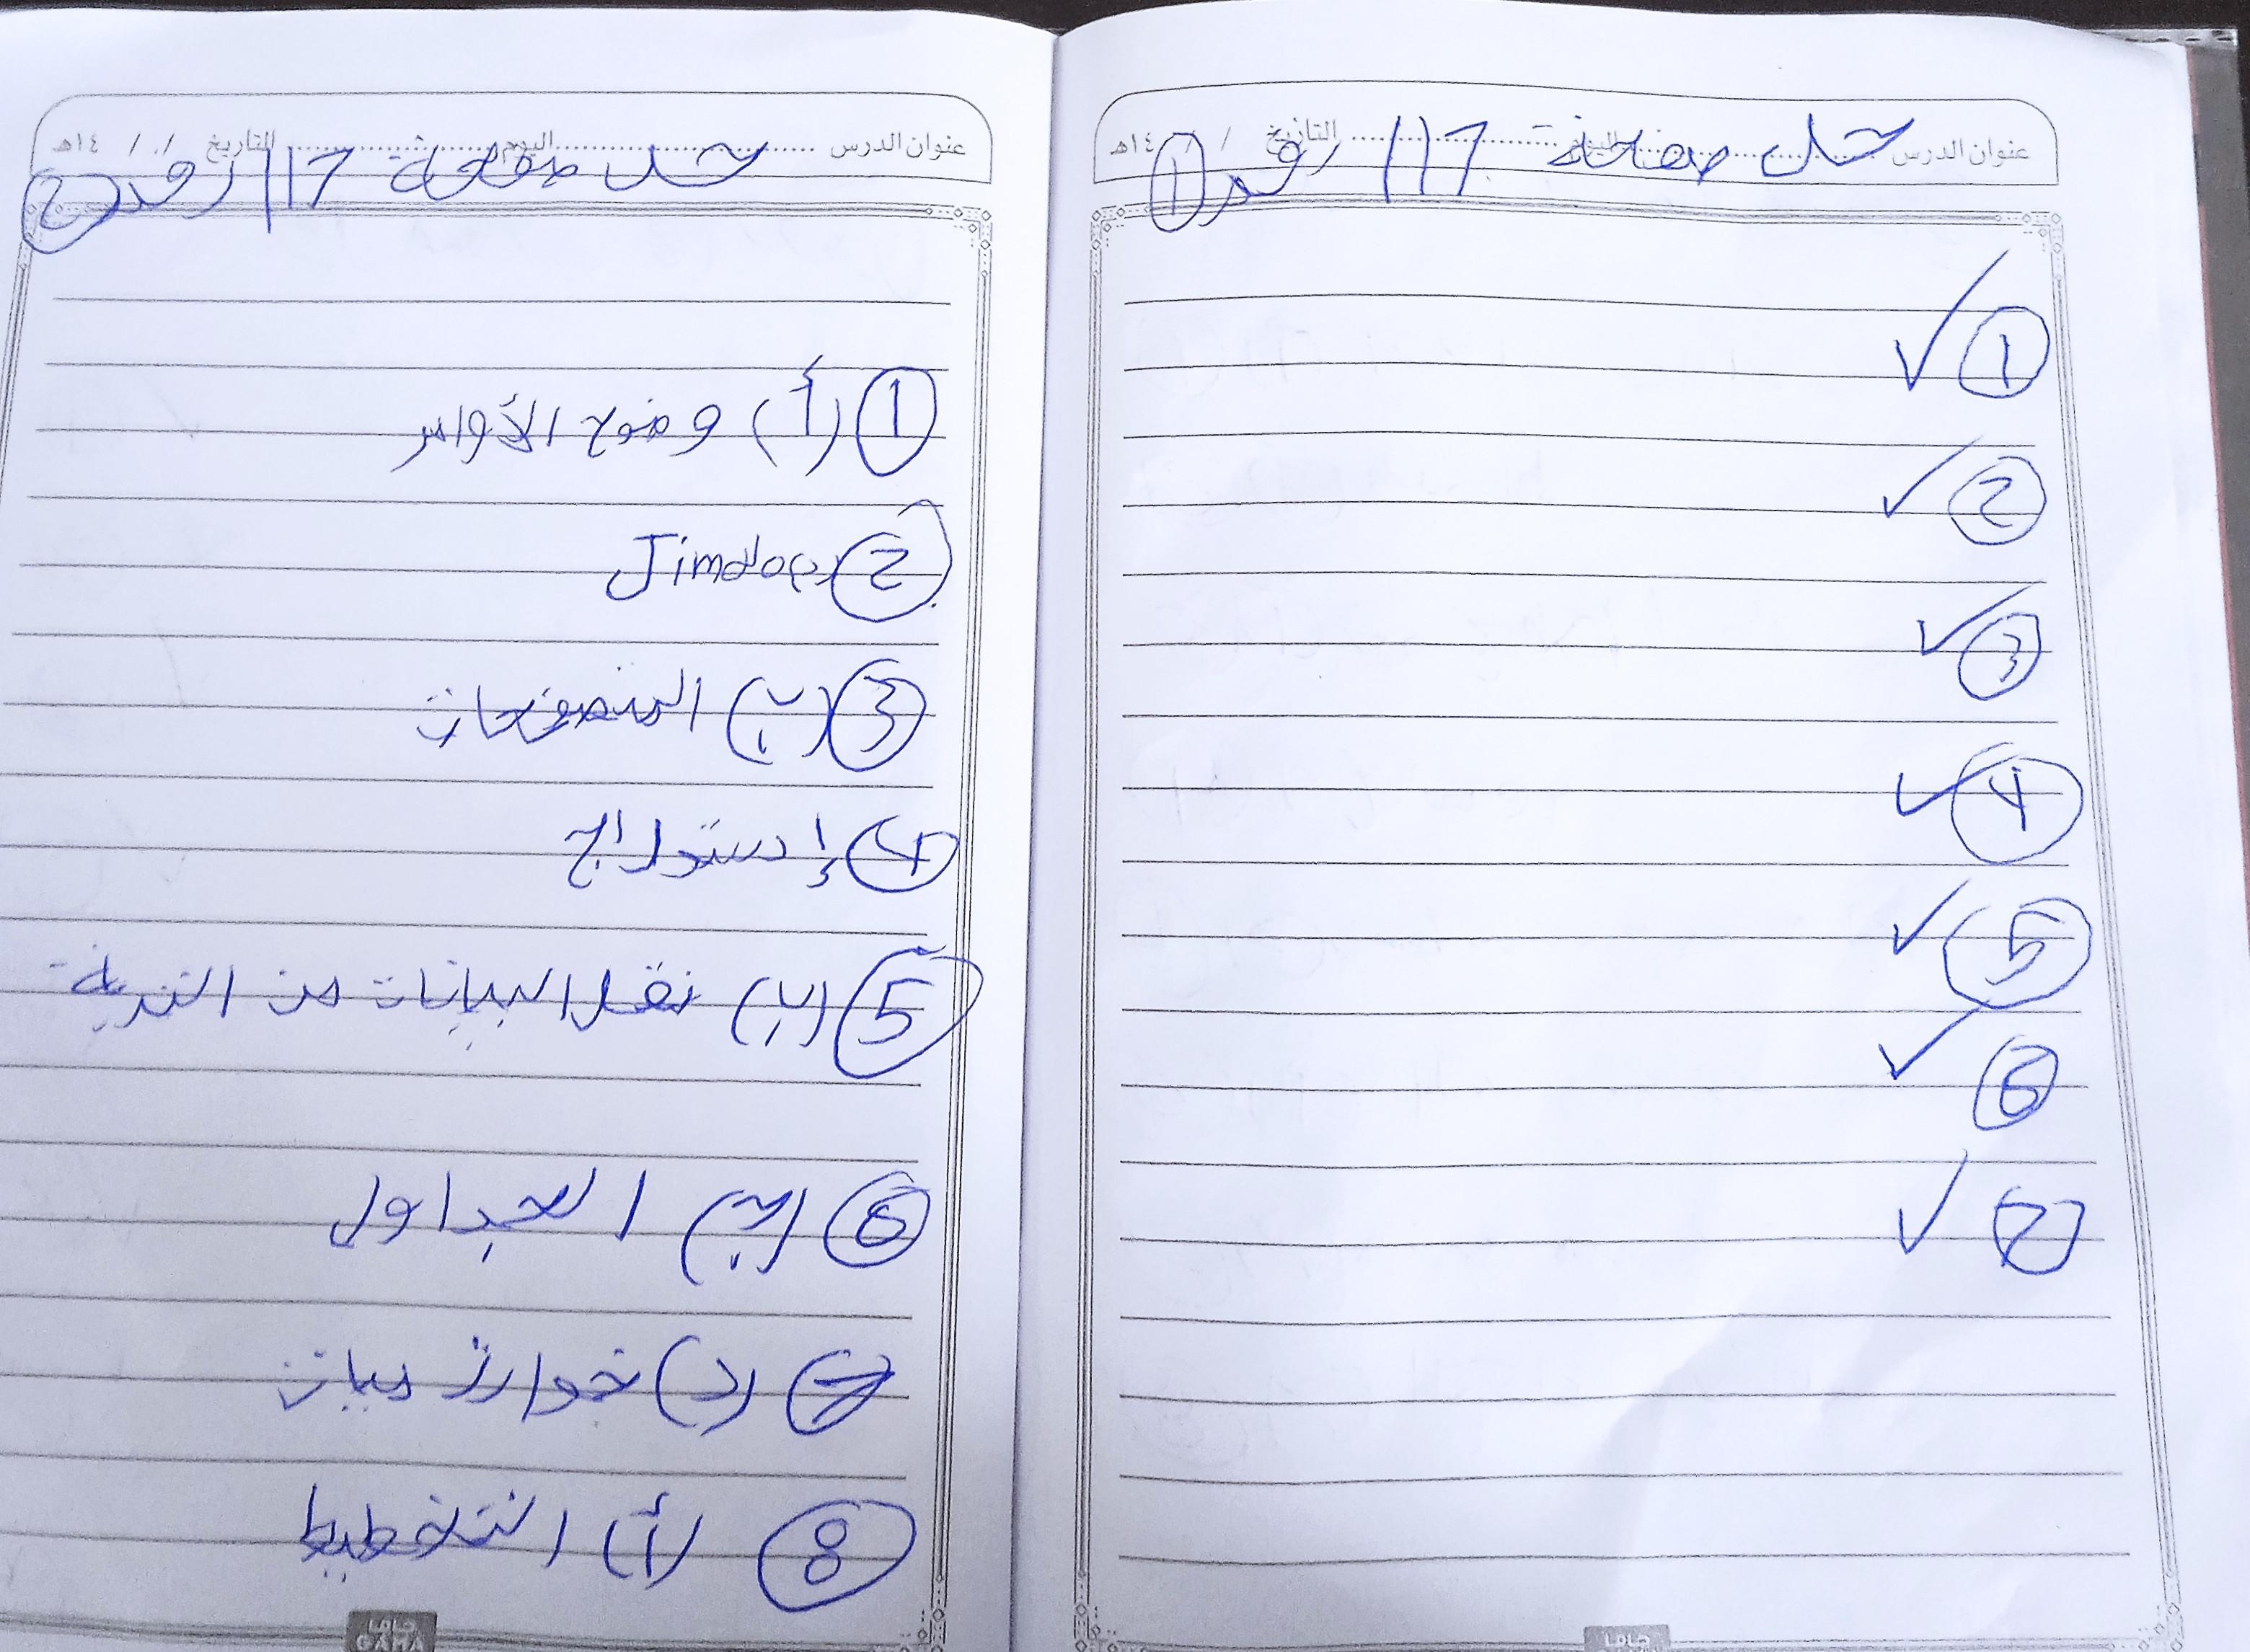 عنوان الدرس اليوم التاريخ / / ١٤هـ
حل صفحة 117 رقم 1
1 ✓
2 ✓
3 ✓
4 ✓
5 ✓
6 ✓
7 ✓
عنوان الدرس اليوم التاريخ / / ١٤هـ
حل صفحة 117 رقم 2
1 (أ) وضوح الأوامر
2 (ج) Jimdo
3 (ب) المتصفحات
4 إدراج
5 (ب) نقل البيانات من التربة
6 (ب) الجداول
7 (د) خوارزميات
8 (أ) التخطيط
جاما
GAMA
جاما